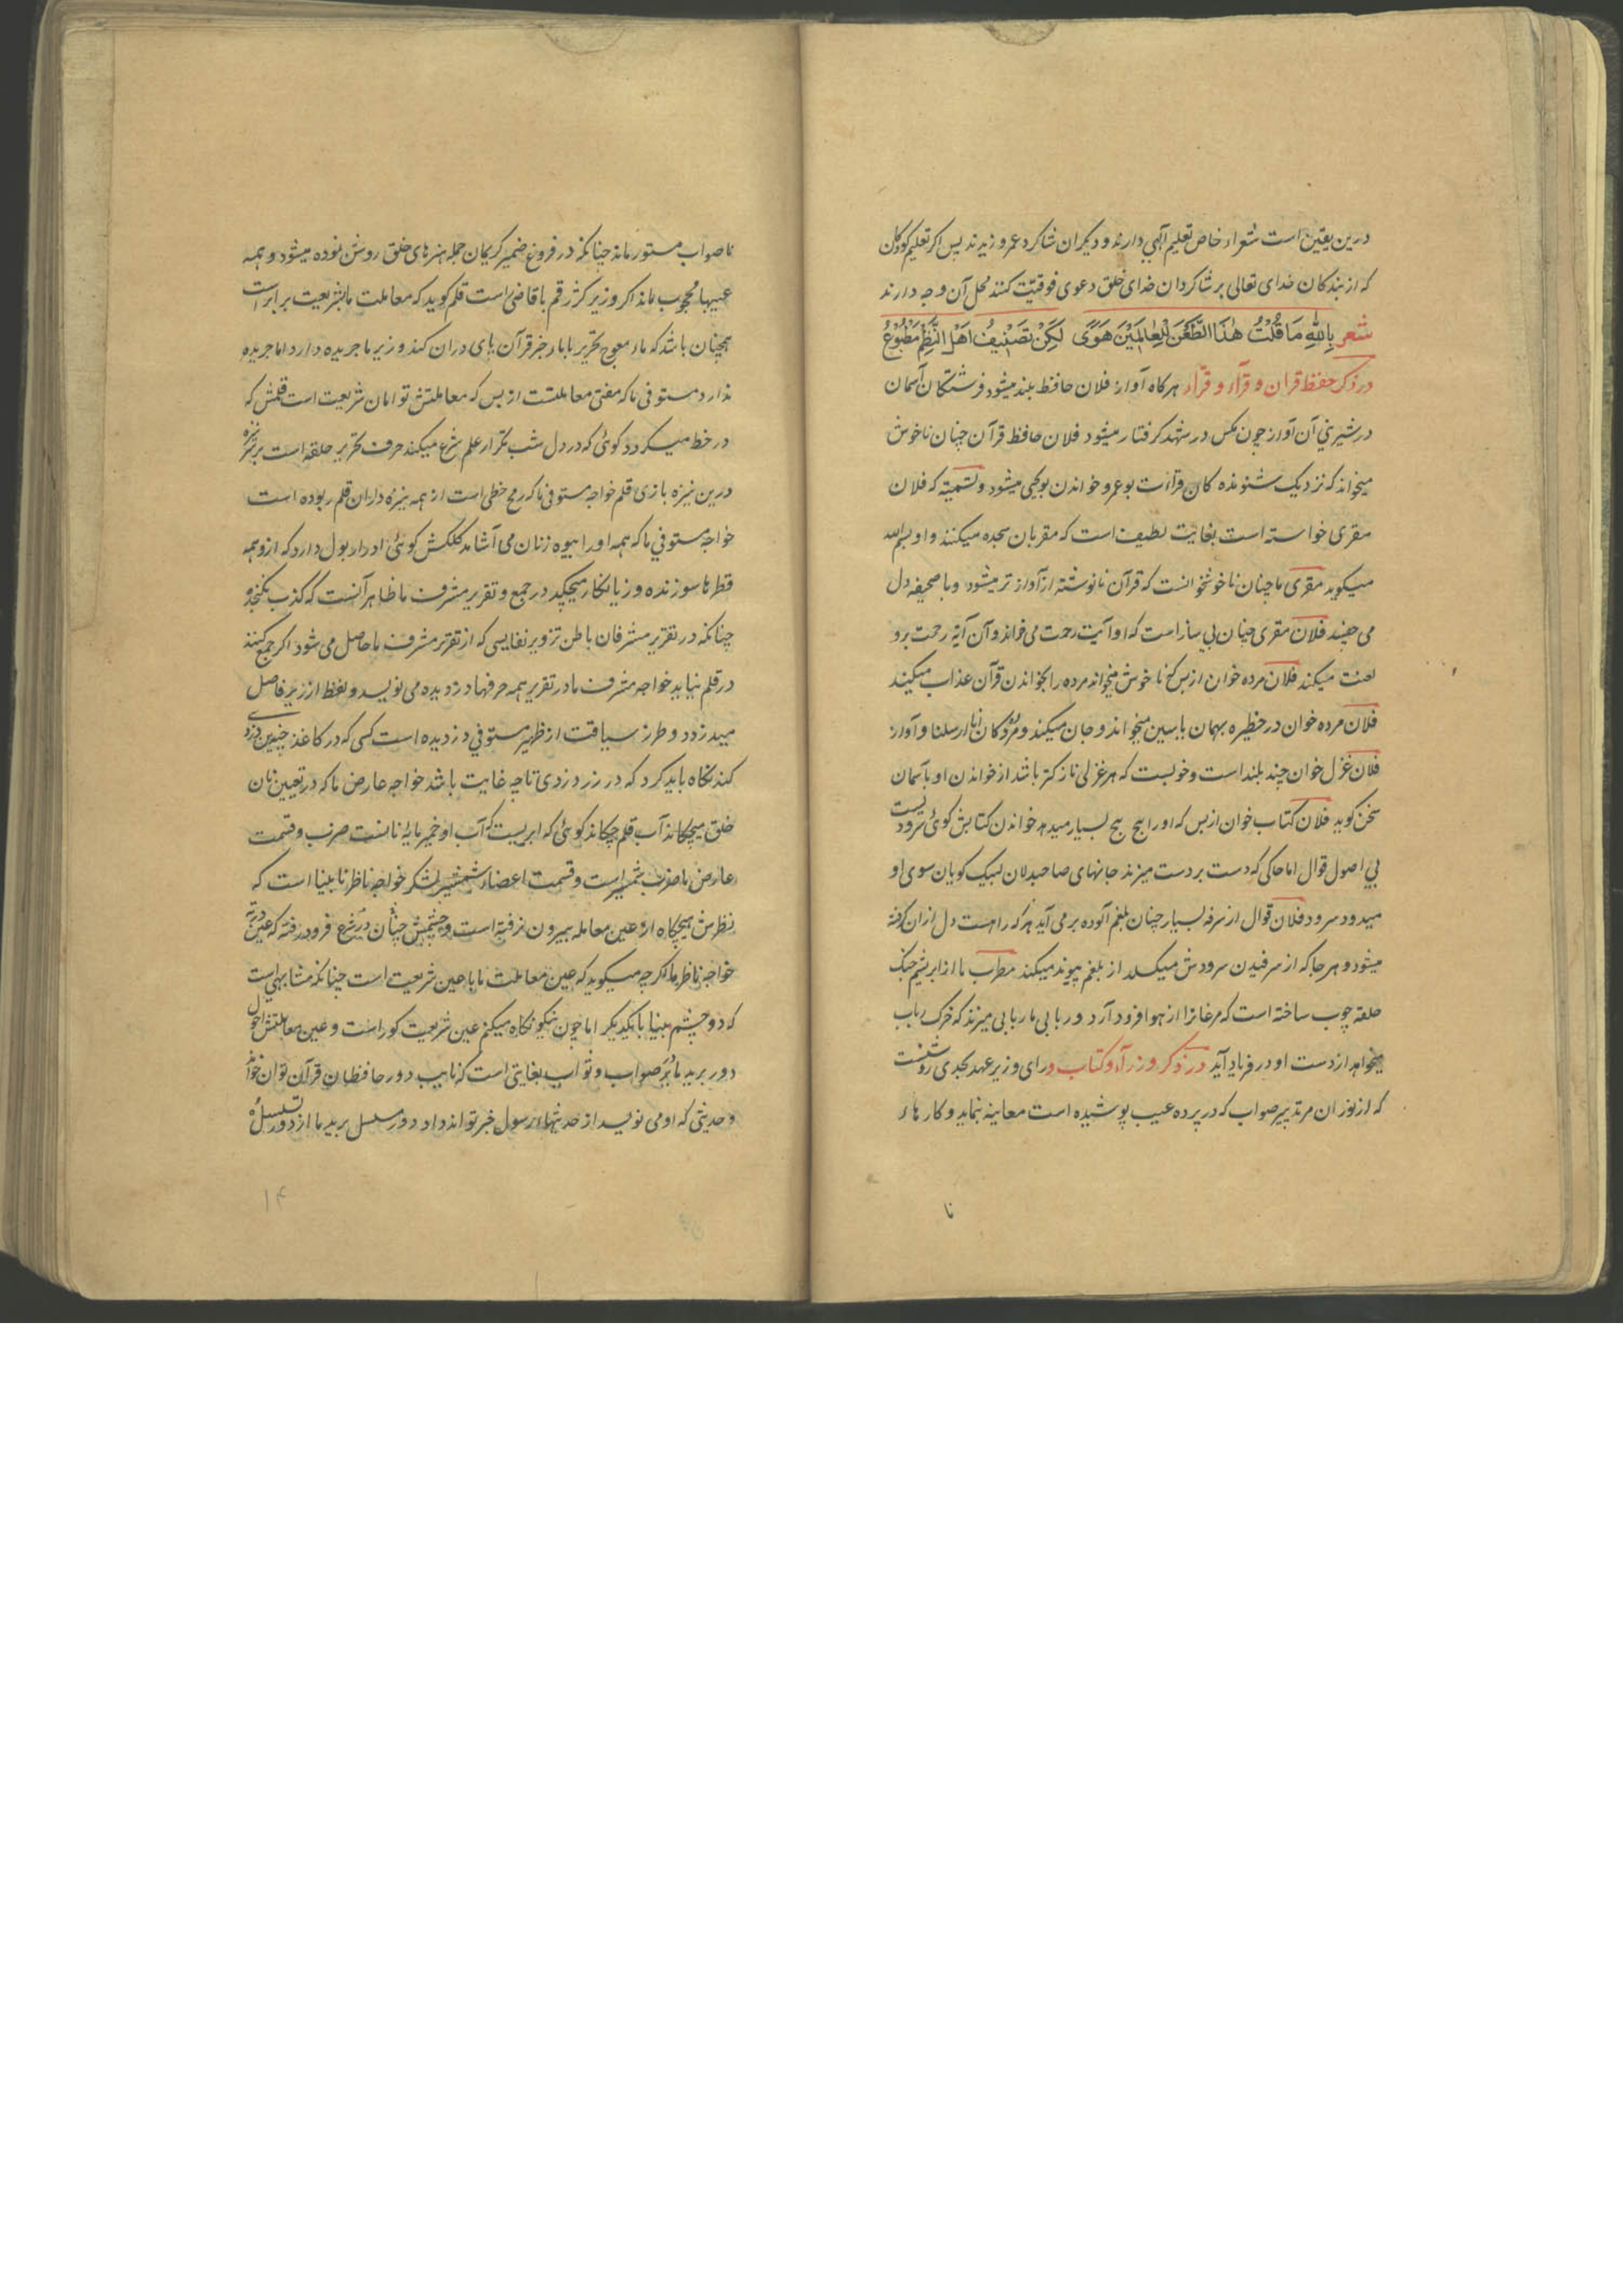 درین یقین است شعراء خاص تعلیم آلهی دارند و دیکران شاکرد عمرو زیدند پس اکر تعلیم کودکان
که از بندکان خدای تعالی بر شاکردان خدای خلق دعوی فوقیّت کنند محل آن وجه دارند
شعر بِاللهِ مَا قُلْتُ هٰذَا الطَّعْنَ لِلْعٰالَمِیْنَ هَوًی لٰکِنْ تَصْنِیْفُ اَهْلِ النَّظْمِ مَطْبُوْعُ
در ذکر حفظ قران و قرآء و قرآء هرکاه آواز فلان حافظ بلند میشود فرشتکان آسمان
در شیرینی آن آواز چون مکس در شهد کرفتار میشود فلان حافظ قرآن چنان ناخوش
میخواند که نزدیک شنونده کان قراأت بوعمرو خواندن بویحیی میشود و تسمیّه که فلان
مقری خواسته است بغایت لطیف است که مقربان سجده میکنند و او بسم الله
میکوید مقری ما چنان ناخوشخوانست که قرآن نانوشته از آواز تر میشود و با صحیفه دل
می چفیند فلان مقری چنان بی ساز است که او آیت رحمت می خواند و آن آیه رحمت برو
لعنت میکند فلان مرده خوان از بس کج ناخوش میخواند مرده را بخواندن قرآن عذاب میکیند
فلان مرده خوان در حظیره بهمان یاسین میخواند و جان میکند و مردکان انا ارسلنا و آواز
فلان غزل خوان چند بلند است و خوبست که هر غزلی نازکتر باشد از خواندن او با آسمان
سخن کوید فلان کتاب خوان از بس که او را هیچ هیچ بسیار میدهد خواندن کتابش کوئی سرودیست
بی اصول قوال اما حاکی که دست بر دست میزند جانهای صاحبدلان لبیک کویان سوی او
میدود سرود فلان قوال از سرفه بسیار چنان بلغم آلوده بر می آید هر که راهست دل ازان کرفته
میشود و هر جا که از سرفیدن سرودش میکسلد از بلغم پیوند میکند مطرب ما از ابریشم چنک
حلقه چوب ساخته است که مرغانرا از هوا فرود آرد و ربابی ما ربابی میزند که خرک رباب
میخواهد از دست او در فریاد آید در ذکر وزرآء و کتاب و رای وزیر عهد بحدی روشنست
که از نور آن هر تدبیر صواب که در پرده غیب پوشیده است معاینه بنماید و کارهاء
نا
ناصواب مستور ماند چنانکه در فروغ ضمیر کریمان جمله هنرهای خلق روشن نموده میشود و همه
عیبها محجوب ماند اکر وزیر کژ رقم با قاضی است قلم کوید که معاملت ما با شریعت برابر است
همچنان باشد که ماء معوج تحریر بابا خبر قرآن بای دران کند وزیر ما جریده دارد اما جریده
ندارد مستوفی ما که مفتی معاملتست از بس که معاملتش توامان شریعت است قلمش که
در خط میکردد کوئی که در دل شب تکرار علم شرع میکند حرف تحریر حلقه است بر تیزه
درین نیزه بازی قلم خواجه مستوفی ما که رمح خطی است از همه نیزه داران قلم ربوده است
خواجه مستوفی ما که همه او را بیوه زنان می آشامد کلکش کوئی ادرار بول دارد که ازو همه
قطرها سوزنده و زیانکار میچکید در جمع و تقریر مشرف ما ظاهر آنست که کذب نکنجد و
چنانکه در تقریر مشرفان باطن تزویر نفایسی که از تقریر مشرف ما حاصل می شود اکر جمع کنند
در قلم نیاید خواجه مشرف ما در تقریر همه حرفها دزدیده می نویسد و لفظ از زیر فاصل
میدزدد و طرز سیاقت از ظهیر مستوفی دزدیده است کسی که در کاغذ چنین دزدی
کند نکاه باید کرد که در زر دزدی تا چه غایت باشد خواجه عارض ما که در تعیین نان
خلق میچکاند آب قلم چکاند کوئی که ابریست که آب او خمیر مایه نانست ضرب و قسمت
عارض ما ضرب شمشیر است و قسمت اعضاء شمشیر لشکر خواجه ناظر ما بیناست که
نظرش هیچکاه از عین معامله بیرون نرفته است و چشمش چنان در شرع فرو رفته که عین
خواجه ناظر ما اکر چه میکوید که عین معاملت ما با عین شریعت است چنانکه مشابهی است
که دو چشم بینا با یکدیکر اما چون نیکو نکاه میکنم عین شریعت کور است و عین معاملتش احول
دور برید ما بر صواب و ثواب بغایتی است که نایب دور حافظان قرآن توان خواند
و حدیثی که او می نویسد از حدیثهاء رسول خبر تواند داد دور مسلسل برید ما از دور تسلسل
۱۴